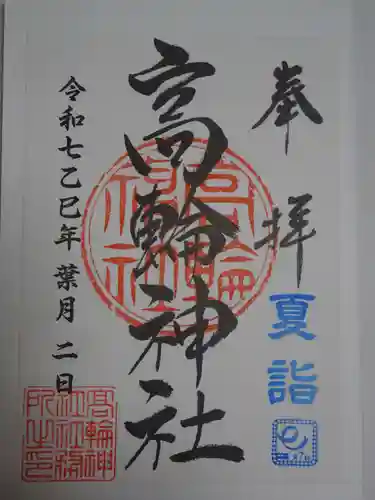 奉拝
夏詣
高輪神社
令和七乙巳年葉月二日
高輪神社
髙輪神社社務所之印